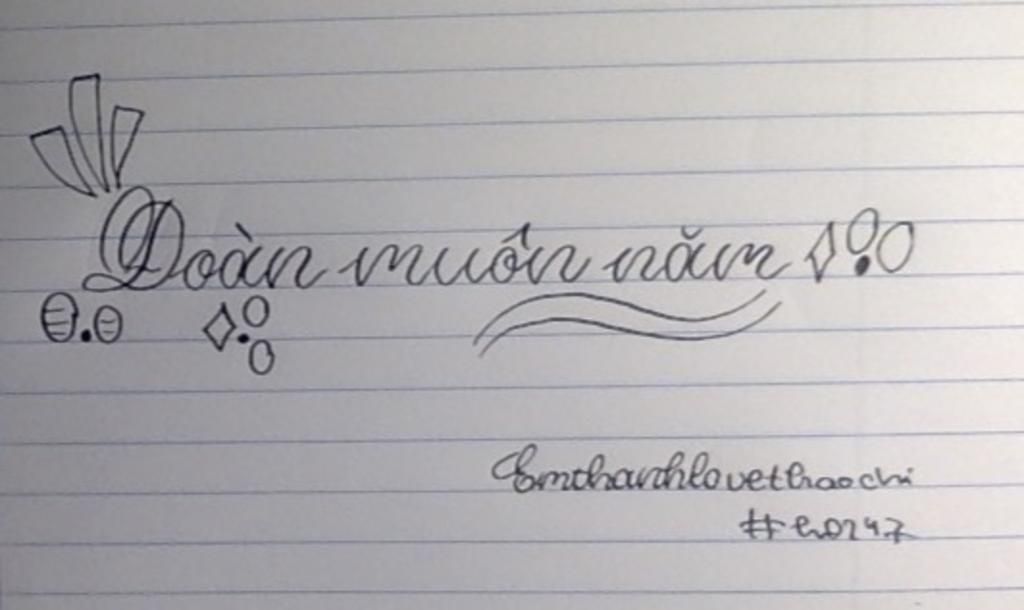 Đoàn muôn năm
Emthanhlovethaochi
#h0247